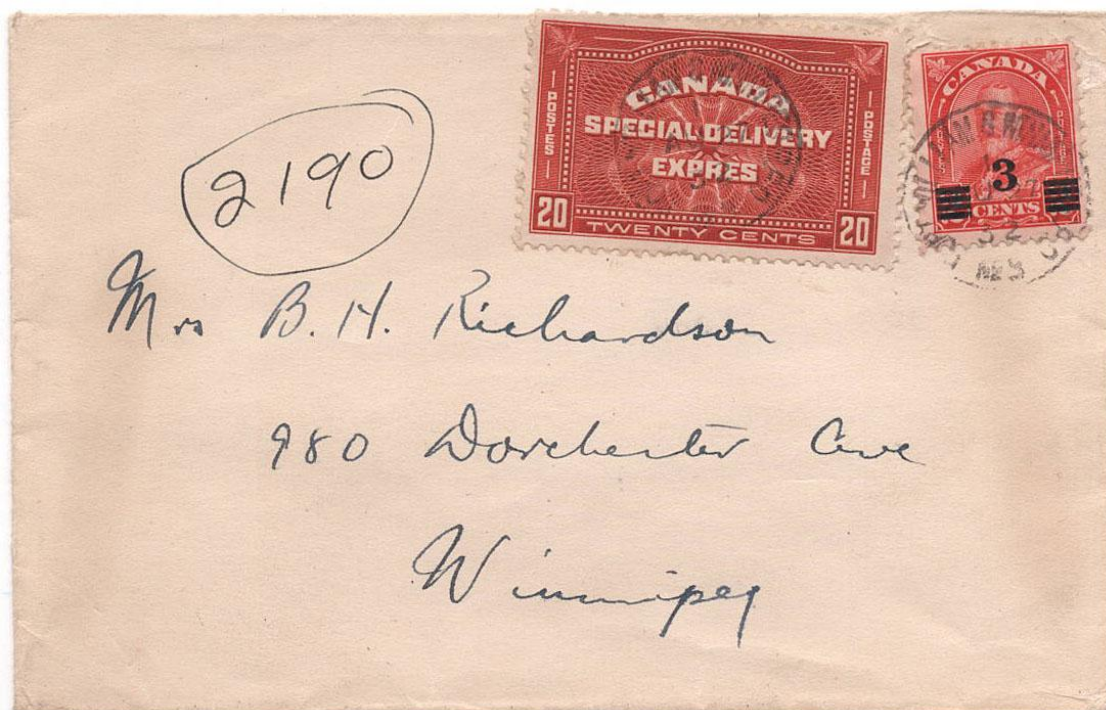 CANADA
SPECIAL DELIVERY
EXPRÈS
POSTES
POSTAGE
20
TWENTY CENTS
20
CANADA
3
CENTS
32
2190
Mrs B. H. Richardson
980 Dorchester Ave
Winnipeg